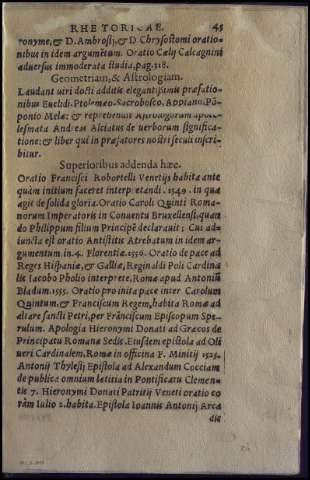 RHETORICAE. 45
ronyme, & D. Ambrosij, & D. Chrysostomi oratio-
nibus in idem argumẽtum. Oratio Cælij Calcagnini
aduersus immoderata studia, pag. 318.
Geometriam, & Astrologiam.
Laudant uiri docti additis elegantissimis præfatio-
nibus Euclidi. Ptolemæo. Sacrobosco. Appiano. Põ-
ponio Melæ: & reprehendit Astrologorum
lesmata Andreas Alciatus de uerborum significa-
tione: & liber qui in præfatores nostri seculi inscri-
bitur.
Superioribus addenda hæc.
Oratio Francisci Robortelli Venetijs habita ante
quàm initium faceret interpretandi. 1549. in qua
agit de solida gloria. Oratio Caroli Quinti Roma-
norum Imperatoris in Conuentu Bruxellensi, quan
do Philippum filium Principẽ declarauit: Cui ad-
iuncta est oratio Antistitis Atrebatum in idem ar-
gumentum. in. 4. Florentiæ. 1556. Oratio de pace ad
Reges Hispaniæ, & Galliæ, Reginaldi Poli Cardina
lis Iacobo Pholio interprete, Romæ apud Antoniũ
Bladum. 1555. Oratio pro inita pace inter Carolum
Quintum, & Franciscum Regem, habita Romæ ad
altare sancti Petri, per Frãciscum Episcopum Spe-
rulum. Apologia Hieronymi Donati ad Græcos de
Principatu Romanæ Sedis. Eiusdem epistola ad Oli
ueri Cardinalem, Romæ in officina F. Minitij 1525.
Antonij Thylesij Epistola ad Alexandum Cocciam
de publica omnium lætitia in Pontificatu Clemen-
tis 7. Hieronymi Donati Patritij Veneti oratio co
ràm Iulio 2. habita. Epistola Ioannis Antonij Arca
die